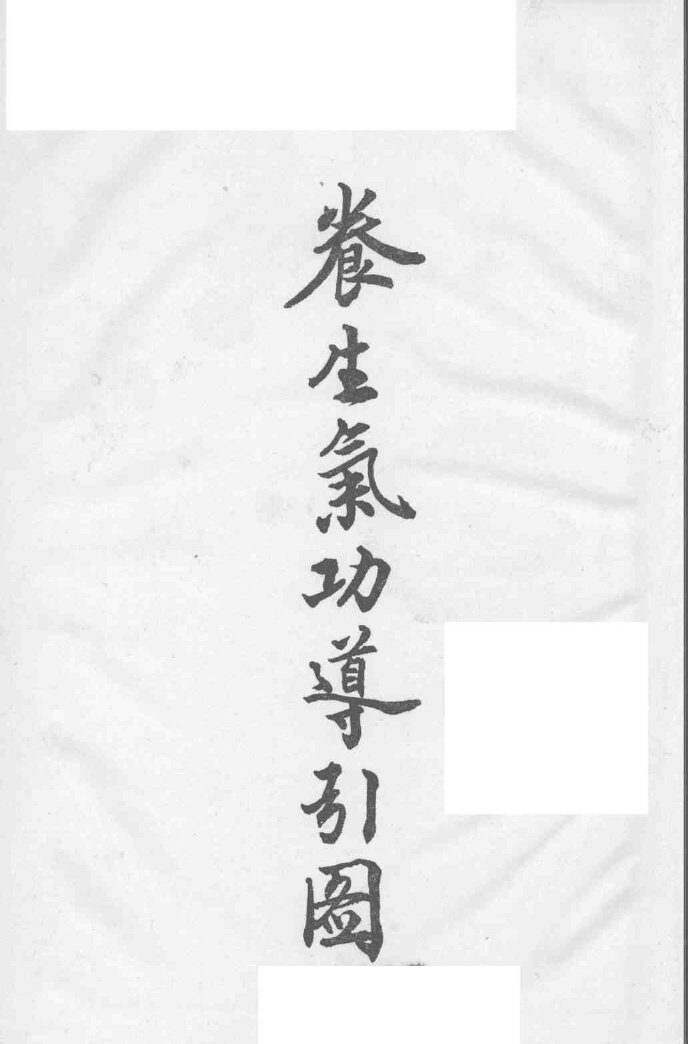 養生氣功導引圖